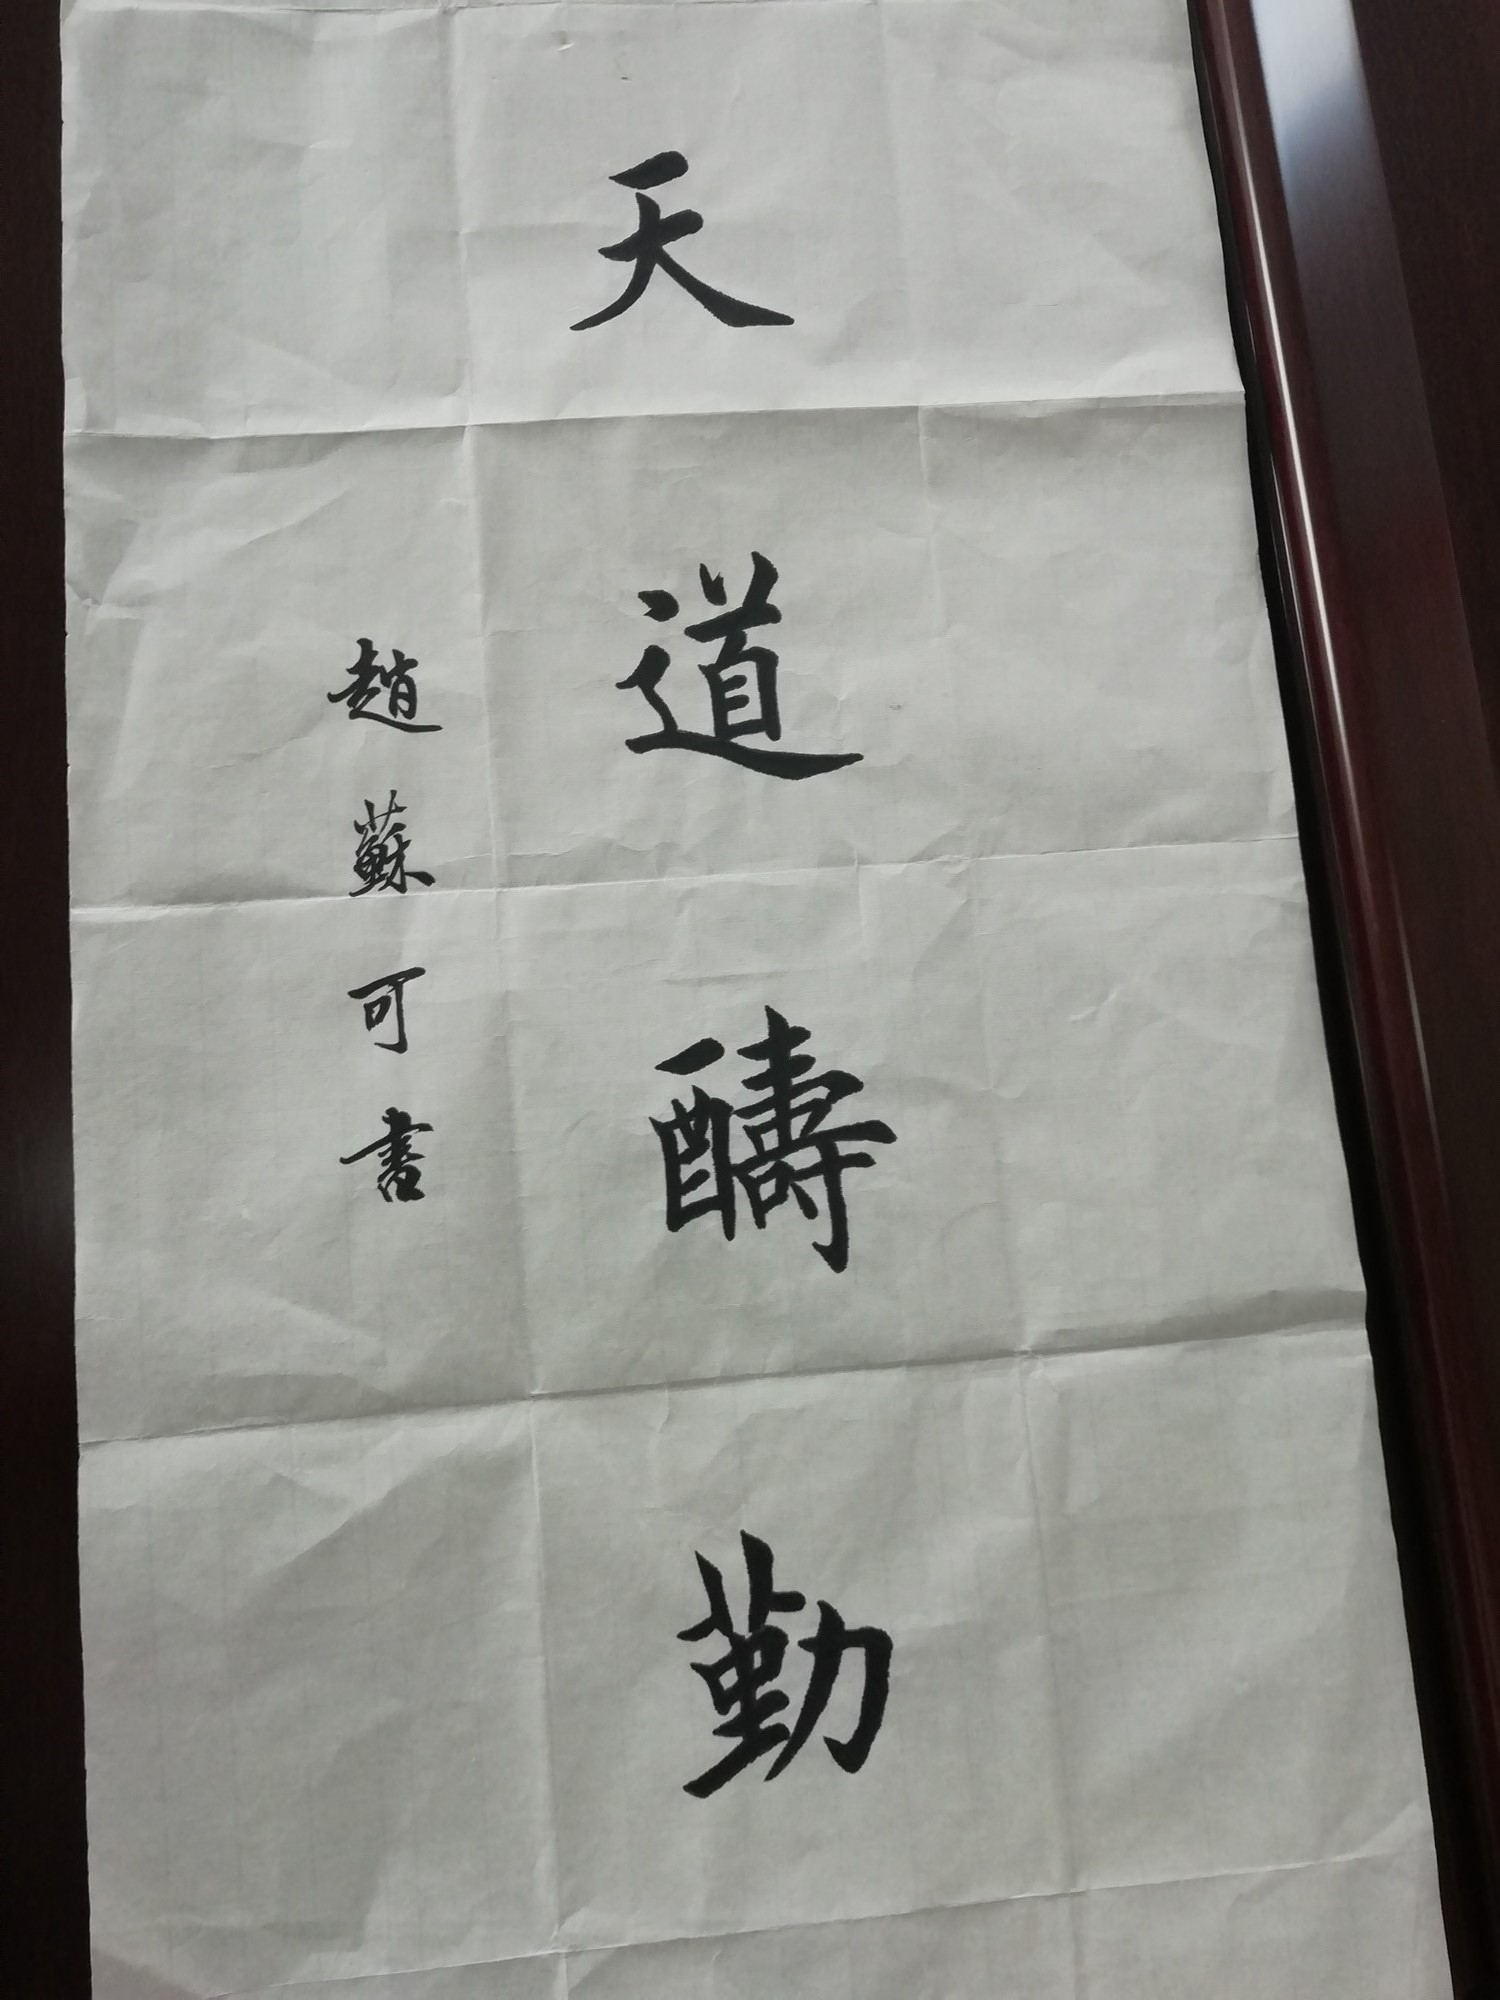 天道醻勤
趙蘇可書